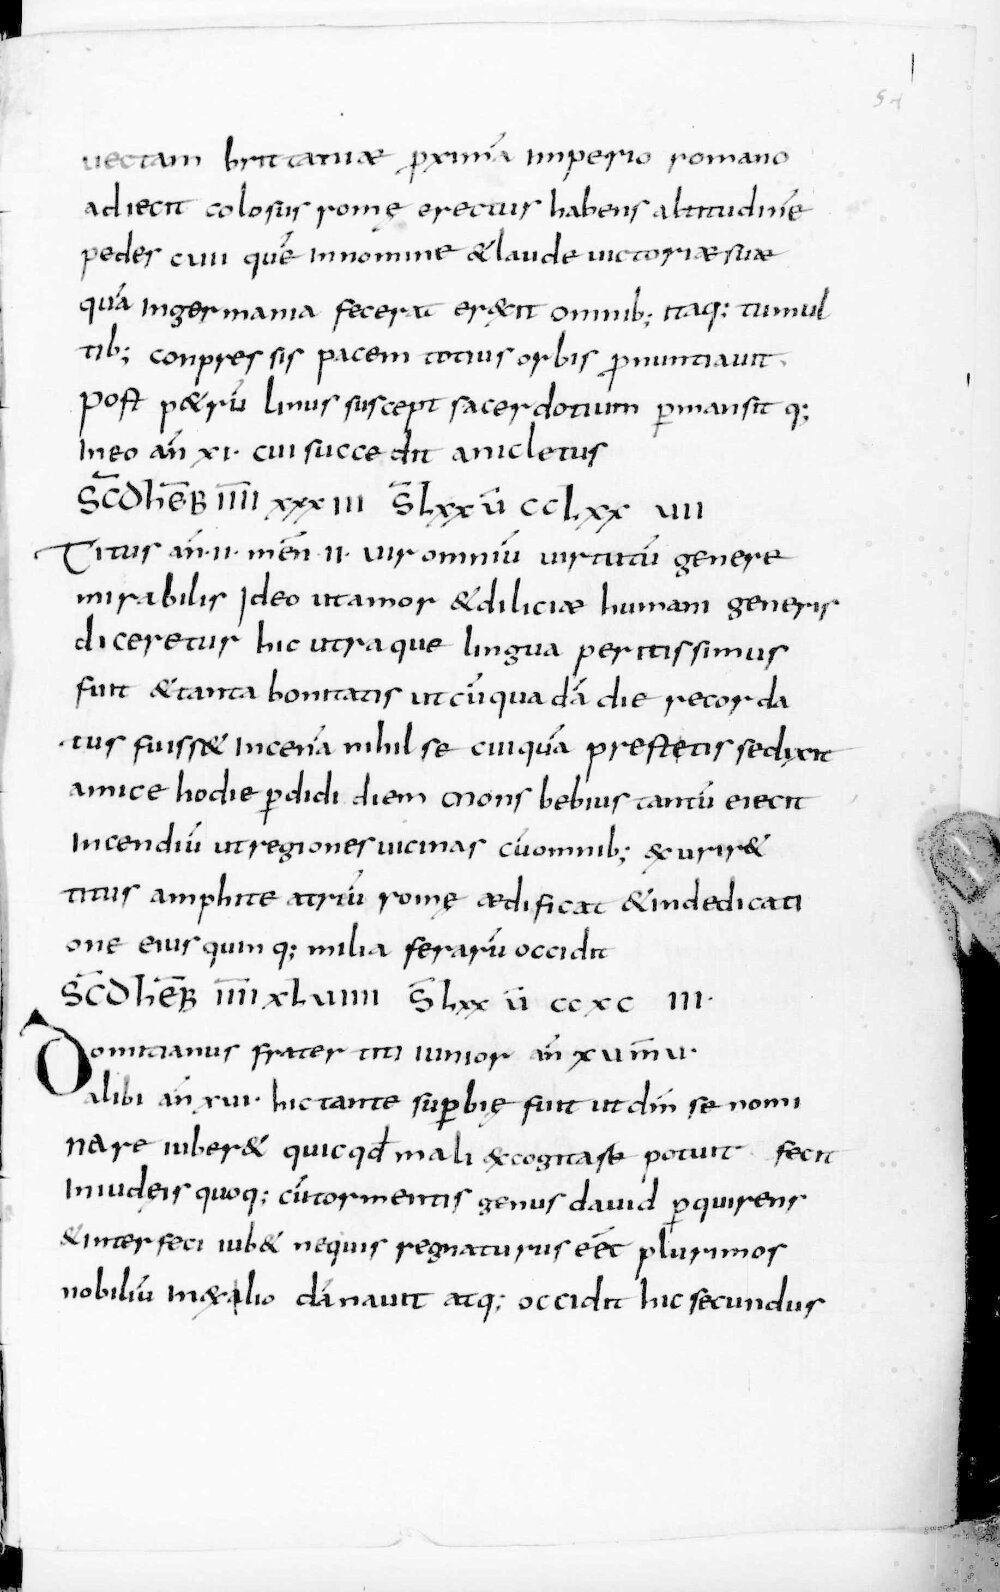 54
uectam brittaniæ ꝓximā imperio romano
adiecit colosus romę erectus habens altitudinē
pedes cuii quē innomine &laude uictoriæ suæ
quā ingermania fecerat er&it omnib; itaq; tumul
tib; conpressis pacem totius orbis ꝓnuntiauit.
Post p&rū linus suscept sacerdotium ꝑmansit q;
Ineo an̄ xi· cui succedit anicletus
S̄cd heb̄ īīīī xxxiii S̄ lxx ū cclxx uiii
Titus an̄·ii· mēn·ii· uir omniū uirtutū genere
mirabilis Ideo ut amor &diliciæ humani generis
diceretur hic utraque lingua peritissimus
fuit &tanta bonitatis ut cūqua dā die recorda
tus fuiss& Incena nihil se cuiquā prestetis sedixit
amice hodie ꝑdidi diem Mons bebius tantū eiecit
Incendiū ut regiones uicinas cūomnib; exurir&
titus amphiteatriū romę ædificat &indedicati
one eius quinq; milia ferarū occidit
S̄cd heb̄ īīīī xluiiii S̄ lxx ū ccxc iii·
Domitianus frater titi iunior an̄ xu m̄ u·
alibi an̄ xui· hic tante suꝑbię fuit ut dn̄ se nomi
nare iuber& quicqd̄ mali excogitase potuit fecit
Iniudęis quoq; cūtormentis genus dauid ꝑquirens
&interfeci iub& nequis regnaturus eēt plurimos
nobiliū Inexalio dānauit atq; occidit hic secundus